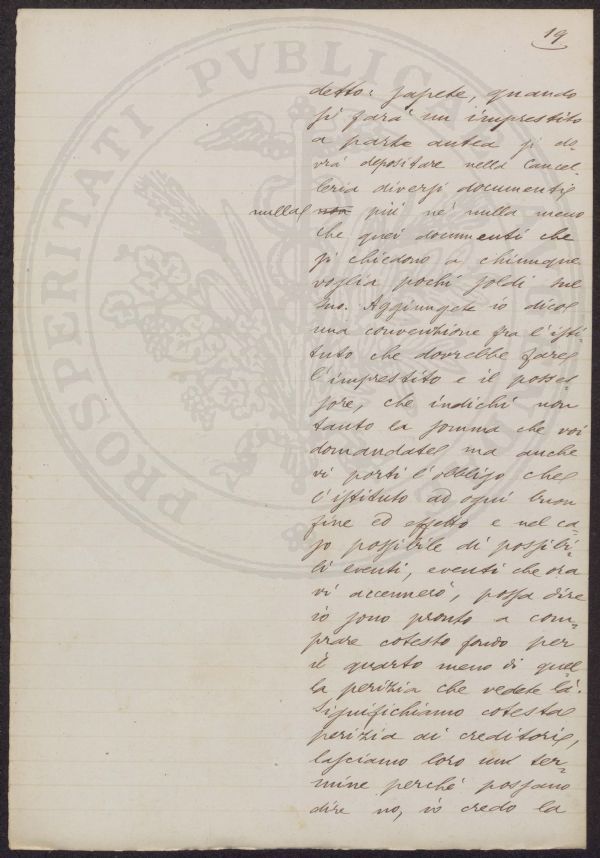 19
detto: sapete, quando
si farà un imprestito
a parte antea si do
vrà depositare nella Cancel-
leria diversi documenti,
nulla non più nè nulla meno
che quei documenti che
si chiedono a chiunque
voglia pochi soldi sul
suo. Aggiungete io dico
una convenzione fra l'isti-
tuto che dovrebbe fare
l'imprestito e il posses
sore, che indichi non
tanto la somma che voi
domandate ma anche
vi porti l'obbligo che
l'istituto ad ogni buon
fine ed effetto e nel ca-
so possibile di possibi-
li eventi, eventi che ora
vi accennerò, possa dire
io sono pronto a com-
prare cotesto fondo per
il quarto meno di quel
la perizia che vedete là.
Significhiamo cotesta
perizia ai creditori,
lasciamo loro un ter-
mine perché possano
dire no, io credo la
PROSPERITATI PVBLICAE